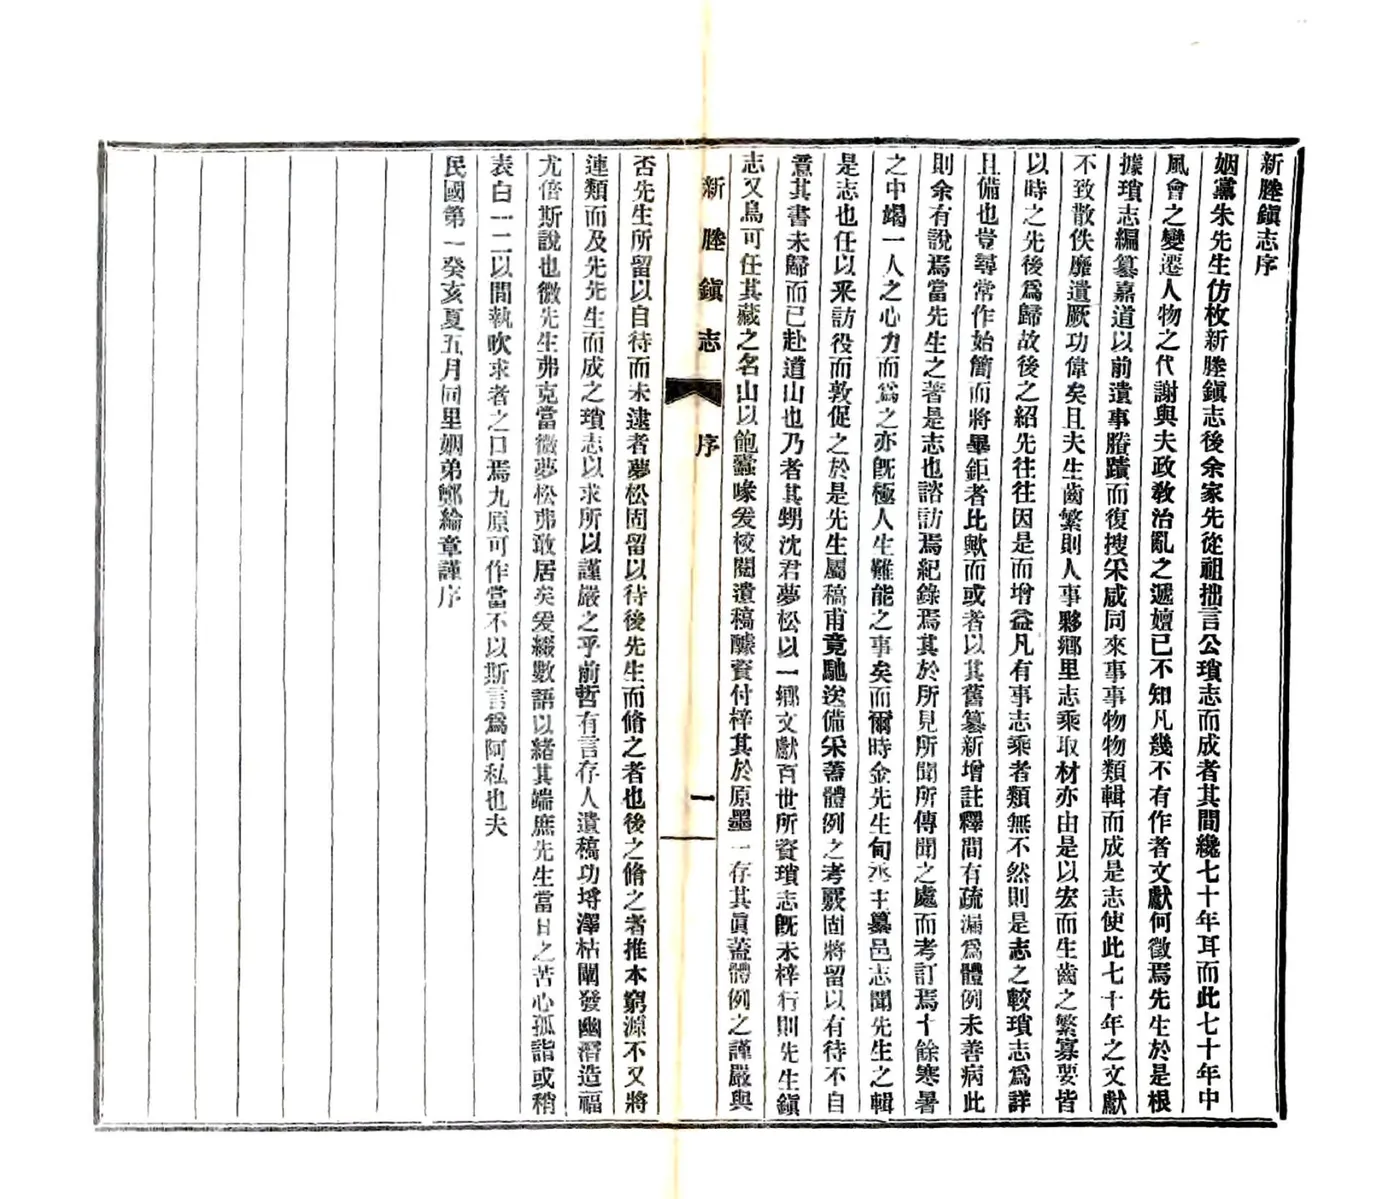 新塍鎭志序
姻黨朱先生仿枚新塍鎭志後余家先從祖拙言公瑣志而成者其間纔七十年耳而此七十年中
風會之變遷人物之代謝與夫政敎治亂之遞嬗已不知凡幾不有作者文獻何徵焉先生於是根
據瑣志編纂嘉道以前遺事賸蹟而復搜采咸同來事事物物類輯而成是志使此七十年之文獻
不致散佚靡遺厥功偉矣且夫生齒繁則人事夥鄕里志乘取材亦由是以宏而生齒之繁寡要皆
以時之先後爲歸故後之紹先往往因是而增益凡有事志乘者類無不然則是志之較瑣志爲詳
且備也豈尋常作始簡而將畢鉅者比歟而或者以其舊纂新增註釋間有疏漏爲體例未善病此
則余有說焉當先生之著是志也諮訪焉紀錄焉其於所見所聞所傳聞之處而考訂焉十餘寒暑
之中竭一人之心力而爲之亦旣極人生難能之事矣而爾時金先生甸丞主纂邑志聞先生之輯
是志也任以采訪役而敦促之於是先生屬稿甫竟馳送備采蓋體例之考覈固將留以有待不自
意其書未歸而已赴道山也乃者其甥沈君夢松以一鄕文獻百世所資瑣志旣未梓行則先生鎭
志又烏可任其藏之名山以飽蠹喙爰校閱遺稿醵資付梓其於原墨一存其眞蓋體例之謹嚴與
新塍鎭志
序
一
否先生所留以自待而未逮者夢松固留以待後先生而脩之者也後之脩之者推本窮源不又將
連類而及先先生而成之瑣志以求所以謹嚴之乎前哲有言存人遺稿功埒澤枯闡發幽潛造福
尤倍斯說也微先生弗克當微夢松弗敢居矣爰綴數語以緖其端庶先生當日之苦心孤詣或稍
表白一二以間執吹求者之口焉九原可作當不以斯言爲阿私也夫
民國第一癸亥夏五月同里姻弟鄭綸章謹序